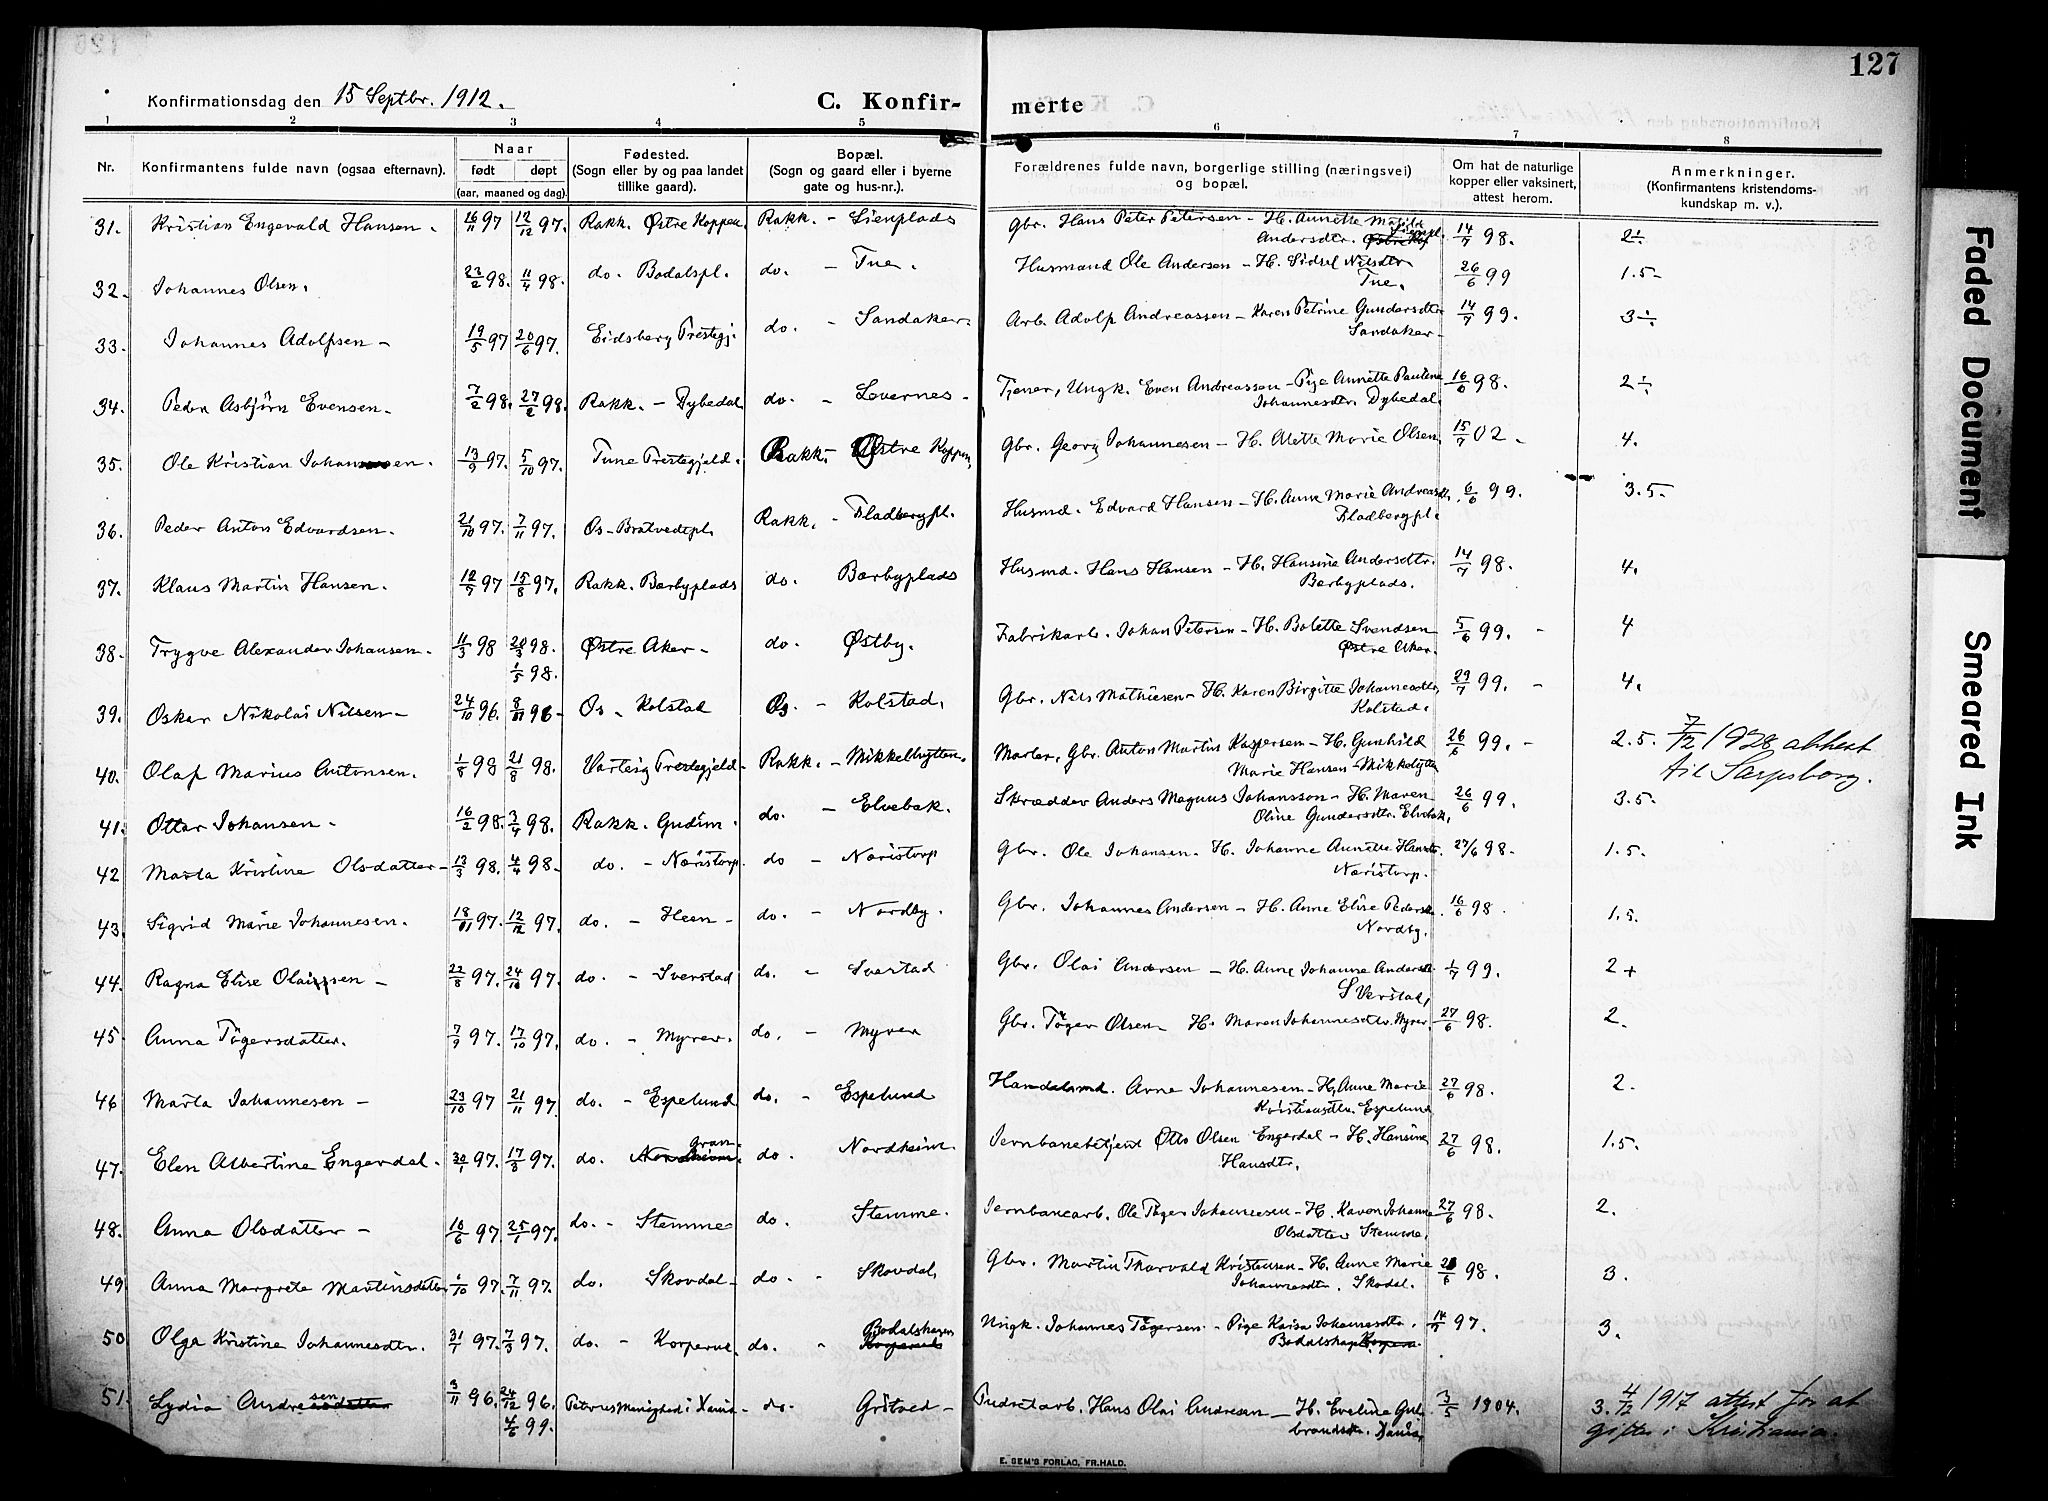 127
Konfirmationsdag den 15 Septbr. 1912.
C. Konfir- merte
1 2 3 4 5 6 7 8
Nr. Konfirmantens fulde navn (ogsaa efternavn). Naar født døpt (aar, maaned og dag). Fødested. (Sogn eller by og paa landet tillike gaard). Bopæl. (Sogn og gaard eller i byerne gate og hus-nr.). Forældrenes fulde navn, borgerlige stilling (næringsvei) og bopæl. Om hat de naturlige kopper eller vaksinert, attest herom. Anmerkninger. (Konfirmantens kristendoms-kundskap m. v.).
31. Kristian Engevald Hansen. 16/11 97 12/12 97. Rakk. Østre Koppen. Rakk. - Lienplads Gbr. Hans Peter Petersen - H. Annette Andersdtr. 14/7 98. 2÷
32. Johannes Olsen. 23/2 98. 11/4 98. do. Bodalspl. do. - Tue. Husmand Ole Andersen - H. Sidsel Nilsdtr. Tue. 26/6 99 1.5-
33. Johannes Adolfsen - 19/5 97 20/6 97. Eidsberg Prestegj. do. - Sandaker. Arb. Adolf Andreassen - Karen Petrine Gundersdtr Sandaker - 14/7 99. 3÷
34. Peder Asbjørn Evensen. 7/2 98. 27/2 98. Rakk. - Dybedal do. - Levernes - Tjener, Ungk. Even Andreassen - Pige Annette Pauline Johannesdtr. Dybedal. 16/6 98. 2÷
35. Ole Kristian Johansen. 13/9 97. 5/10 97. Tune Prestegjeld. Rakk. - Østre Koppen, Gbr. Georg Johannesen - H. Alette Marie Olsen. 15/7 02 - 4.
36. Peder Anton Edvardsen. 21/10 97. 7/11 97. Os - Bratvedtpl. Rakk. - Fladbergpl. Husmd. Edvard Hansen - H. Anne Marie Andreasdtr. Fladbergpl. 6/6 99. 3.5-
37. Klaus Martin Hansen. 12/7 97 15/8 97. Rakk. Bærbyplads do. Bærbyplads Husmd. Hans Hansen - H. Hansine Andersdtr. Bærbyplads. 14/7 98. 4.
38. Trygve Alexander Johansen. 11/3 98 20/3 98. 1/5 98. Østre Aker - do. Østby. Fabrikarb. Johan Petersen - H. Bolette Svendsen Østre Aker. 5/6 99. - 4
39. Oskar Nikolai Nilsen - 24/10 96. 8/11 96 - Os - Kolstad Os. - Kolstad. Gbr. Nils Mathiesen - H. Karen Birgitte Johannesdtr. Kolstad. 29/7 99. - 4.
40. Olaf Marius Antonsen. 1/8 98 21/8 98. Varteig Prestegjeld - Rakk. - Mikkelhytten. Murer, Gbr. Anton Martin Kaspersen - H. Gunhild Marie Hansen - Mikkelytta 26/6 99. - 2.5. 7/12 1928 attest til Sarpsborg.
41. Ottar Johansen - 16/2 98. 3/4 98. Rakk. Gudim. do. - Elvebak. Skrædder Anders Magnus Johansson - H. Maren Oline Gundersdtr. Elvebak, 26/6 99. 3.5-
42 Marta Kristine Olsdatter - 13/3 98. 4/4 98. do. - Næristorp. do - Næristorp Gbr. Ole Johansen. H. Johanne Annette Hansdtr. Næristorp. 27/6 98. 1.5.
43. Sigrid Marie Johannesen. 18/11 97. 12/12 97. do. - Heen - do. - Nordby. Gbr. Johannes Andersen - H. Anne Elise Pedersdtr. Nordby. 16/6 98. 1.5.
44. Ragna Elise Olaissen - 22/8 97. 24/10 97. do. - Sverstad do. - Sverstad Gbr. Olai Andersen - H. Anne Johanne Andersdtr. Sverstad, 1/7 99. 2+
45 Anna Tøgersdatter. 7/9 97. 17/10 97. do. - Myrer. do. - Myrer Gbr. Tøger Olsen H. Maren Johannesdtr. Myrer. 27/6 98. 2.
46 Marta Johannesen - 23/10 97 21/11 97 do. - Espelund do. - Espelund Handelsmd. Arne Johannesen - H. Anne Marie Kristiansdtr. Espelund 27/6 98. 2.
47. Elen Albertine Engerdal. 30/1 97. 17/3 97. do. Nordheim. Gran- do. - Nordheim Jernbanebetjent Otto Olsen Engerdal - H. Hansine Hansdtr. 27/6 98. 1.5.
48. Anna Olsdatter - 16/6 97. 25/7 97. do. - Stemme do. Stemme. Jernbanearb. Ole Tøger Johannesen - H. Karen Johanne Olsdatter Stemme. 27/6 98. 2.
49 Anna Margrete Martinsdatter 1/10 97. 7/11 97. do. Skovdal - do. - Skovdal Gbr. Martin Thorvald Kristensen - H. Anne Marie Johannesdtr. Skodal. 28/6 98. 3.
50 Olga Kristine Johannesdtr. 31/1 97. 7/3 97. do. - Korperud. do. - Bodalshagen Korperud Ungk. Johannes Tøgersen - Pige Kaisa Johannesdtr. Bodalshag. 14/7 97. 3.
51. Lydia Andresdatter sen 3/11 96. 26/12 96. 4/6 99. Petrus Menighed i Xania - do. Gritved - Pudretarb. Hans Olai Andresen - H. Eveline Gulbrandsdtr. Xania, 3/5 1904. 3. 4/12 1917 attest for at giftes i Kristiania.
E. SEM'S FORLAG, FR.HALD.
Faded Document
Smeared Ink